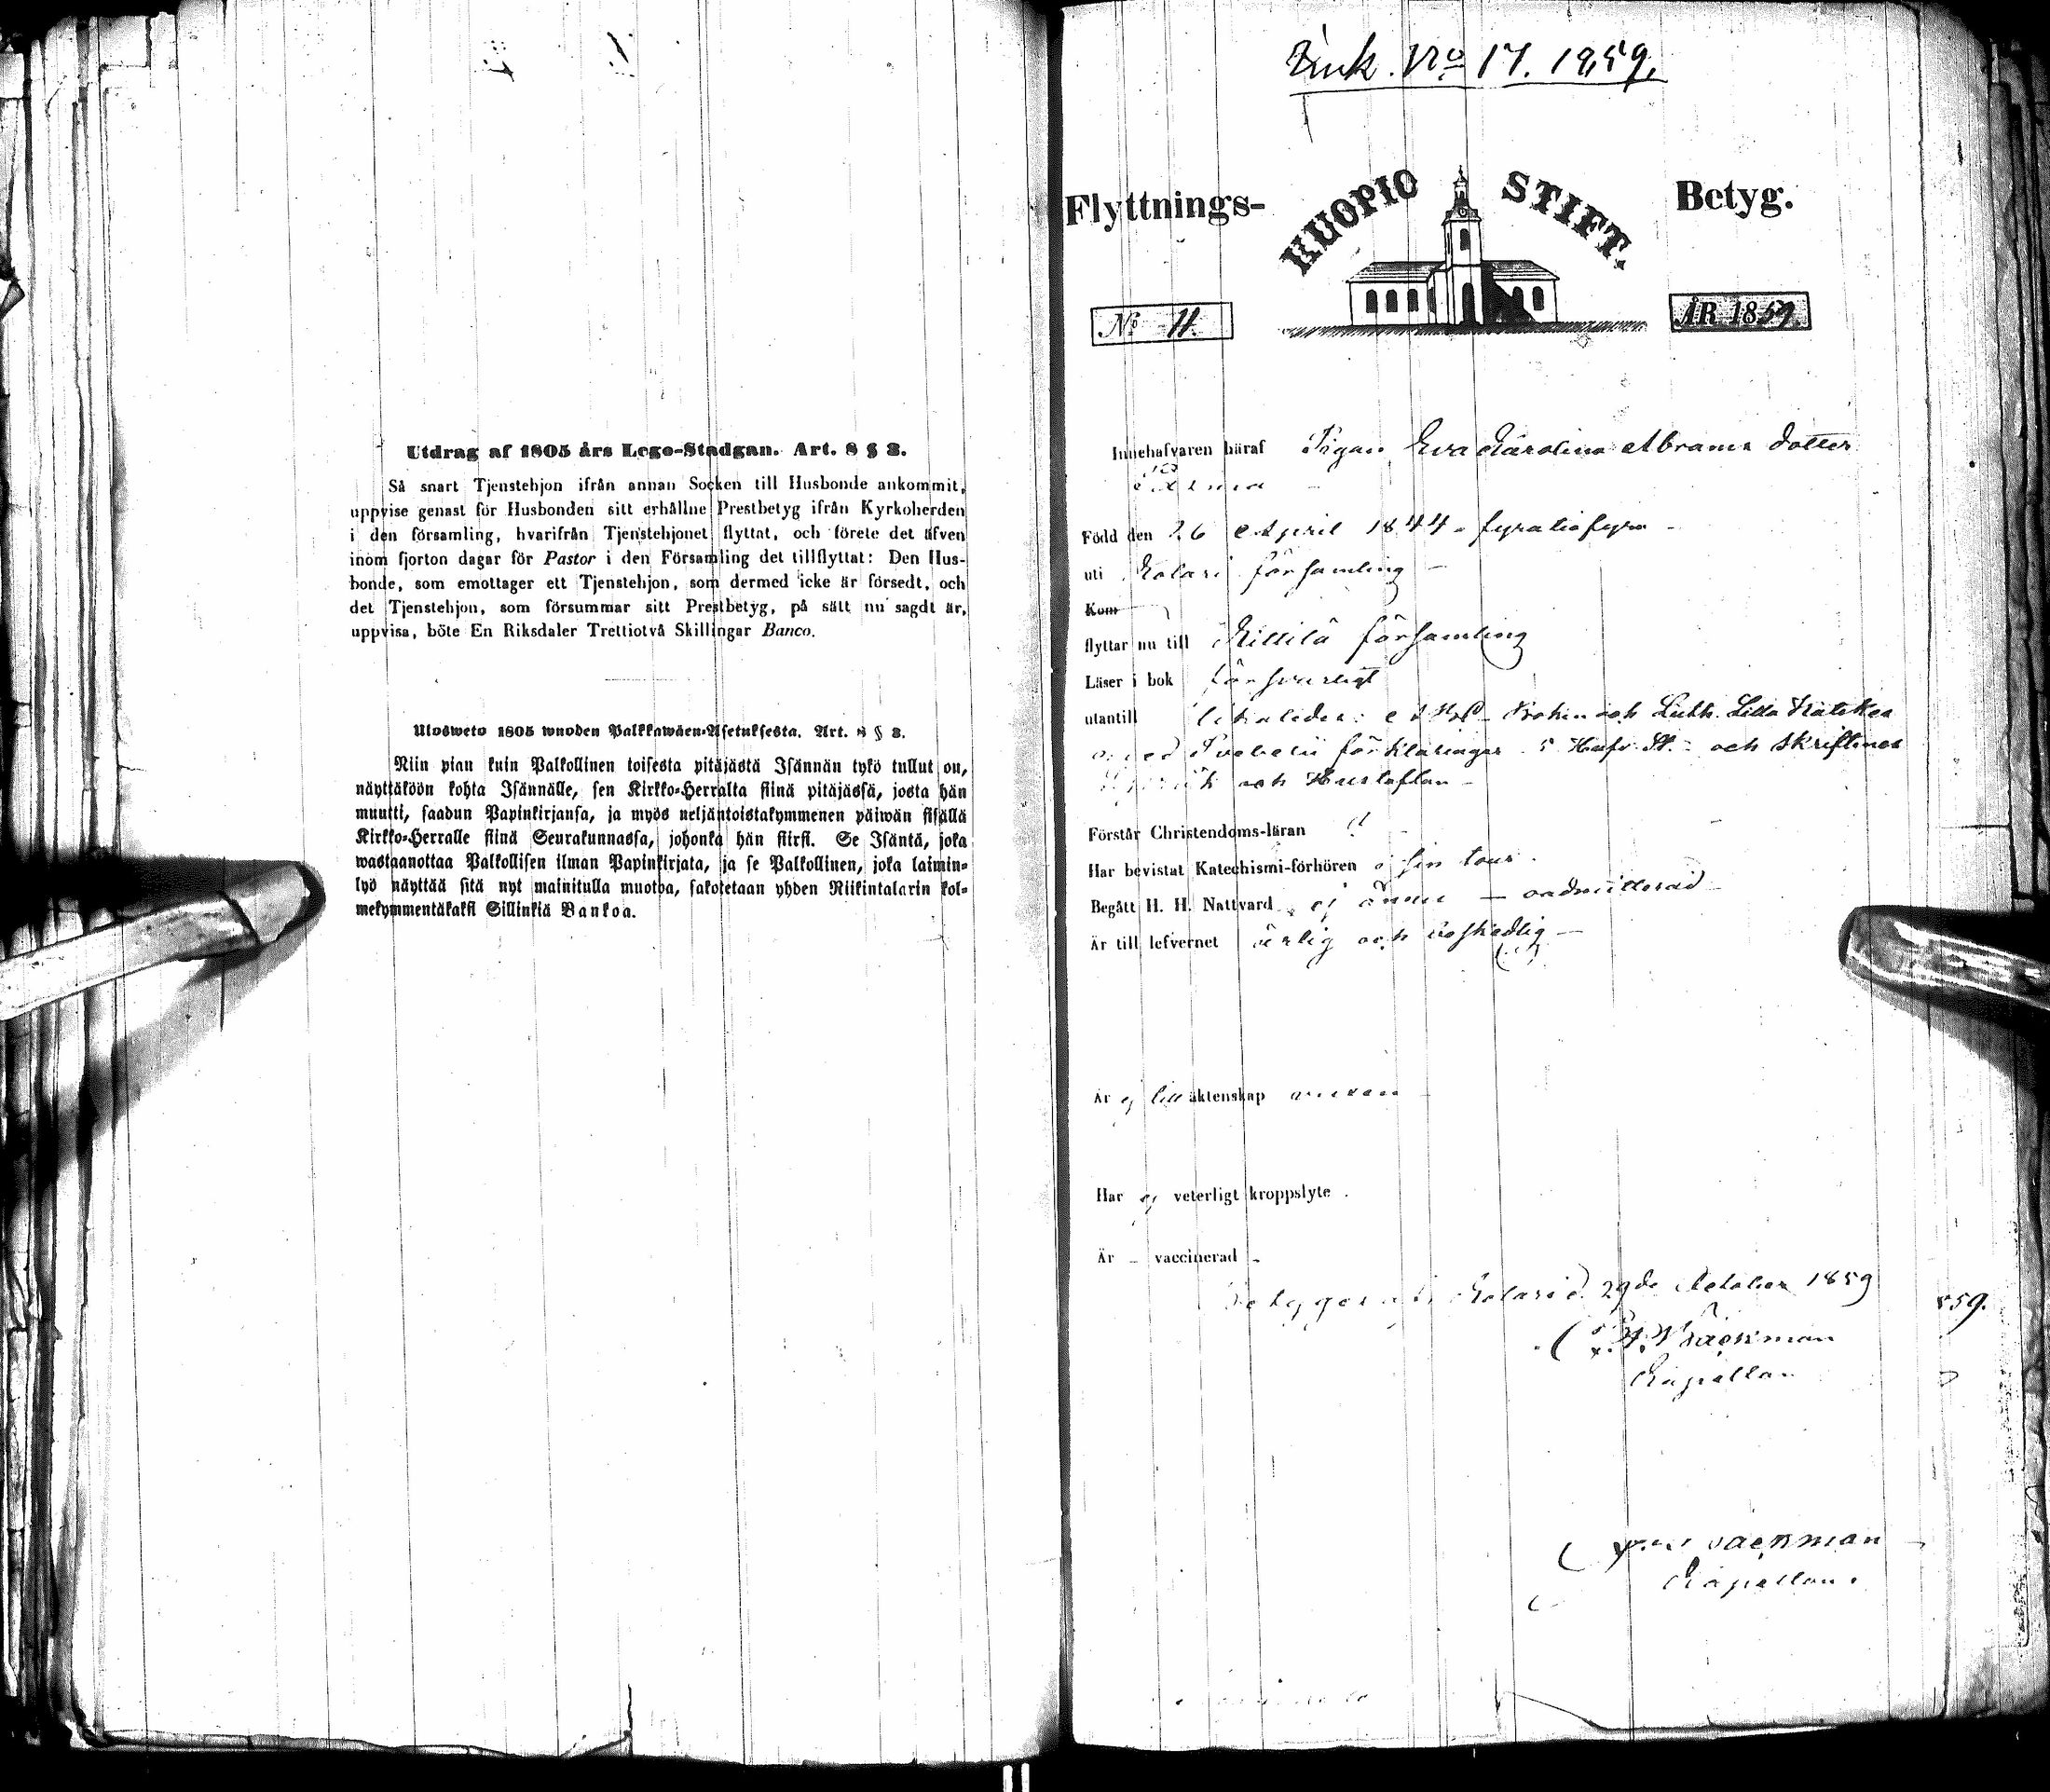 Utdrag af 1805 års Lego-Stadgan. Art. 8 § 3.
Så snart Tjenstehjon ifrån annan Socken till Husbonde ankommit,
uppvise genast för Husbonden sitt erhållne Prestbetyg ifrån Kyrkoherden
i den församling, hvarifrån Tjenstehjonet flyttat, och förete det äfven
inom fjorton dagar för Pastor i den Församling det tillflyttat: Den Hus-
bonde, som emottager ett Tjenstehjon, som dermed icke är försedt, och
det Tjenstehjon, som försummar sitt Prestbetyg, på sätt nu sagdt är,
uppvisa, böte En Riksdaler Trettiotvå Skillingar Banco.
Ulosweto 1805 wuoden Palkkawäen-Asetuksesta. Art. 8 § 3.
Niin pian kuin Palkollinen toisesta pitäjästä Isännän tykö tullut on,
näyttäköön kohta Isännälle, sen Kirkko-Herralta siinä pitäjässä, josta hän
muutti, saadun Papinkirjansa, ja myös neljäntoistakymmenen päiwän sisällä
Kirkko-Herralle siinä Seurakunnassa, johonka hän siirsi. Se Isäntä, joka
wastaanottaa Palkollisen ilman Papinkirjata, ja se Palkollinen, joka laimin-
lyö näyttää sitä nyt mainitulla muotoa, sakotetaan yhden Riikintalarin kol-
mekymmentäkaksi Sillinkiä Bankoa.
Ink. No 17. 1859.
Flyttnings- KUOPIO STIFT. Betyg.
No 11. ÅR 1859.
Innehafvaren häraf Pigan Eva Carolina Abrams dotter
Född den 26 April 1844 - fyratiofyra -
uti Kolari församling -
Kom
flyttar nu till Kittilä församling
Läser i bok försvarligt
utantill Luth. Lilla Katekes
med Svebelii förklaringar och skriftmos
och Hustaflan -
Förstår Christendoms-läran
Har bevistat Katechismi-förhören å sin tour.
Begått H. H. Nattvard ej ännu - oadmitterad -
Är till lefvernet ärlig och beskedlig -
Är ej till äktenskap
Har ej veterligt kroppslyte.
Är - vaccinerad -
Betygar uti Kolari d. 29de October 1859
859.
Brackman
Kapellan
Brackman
Kapellan.